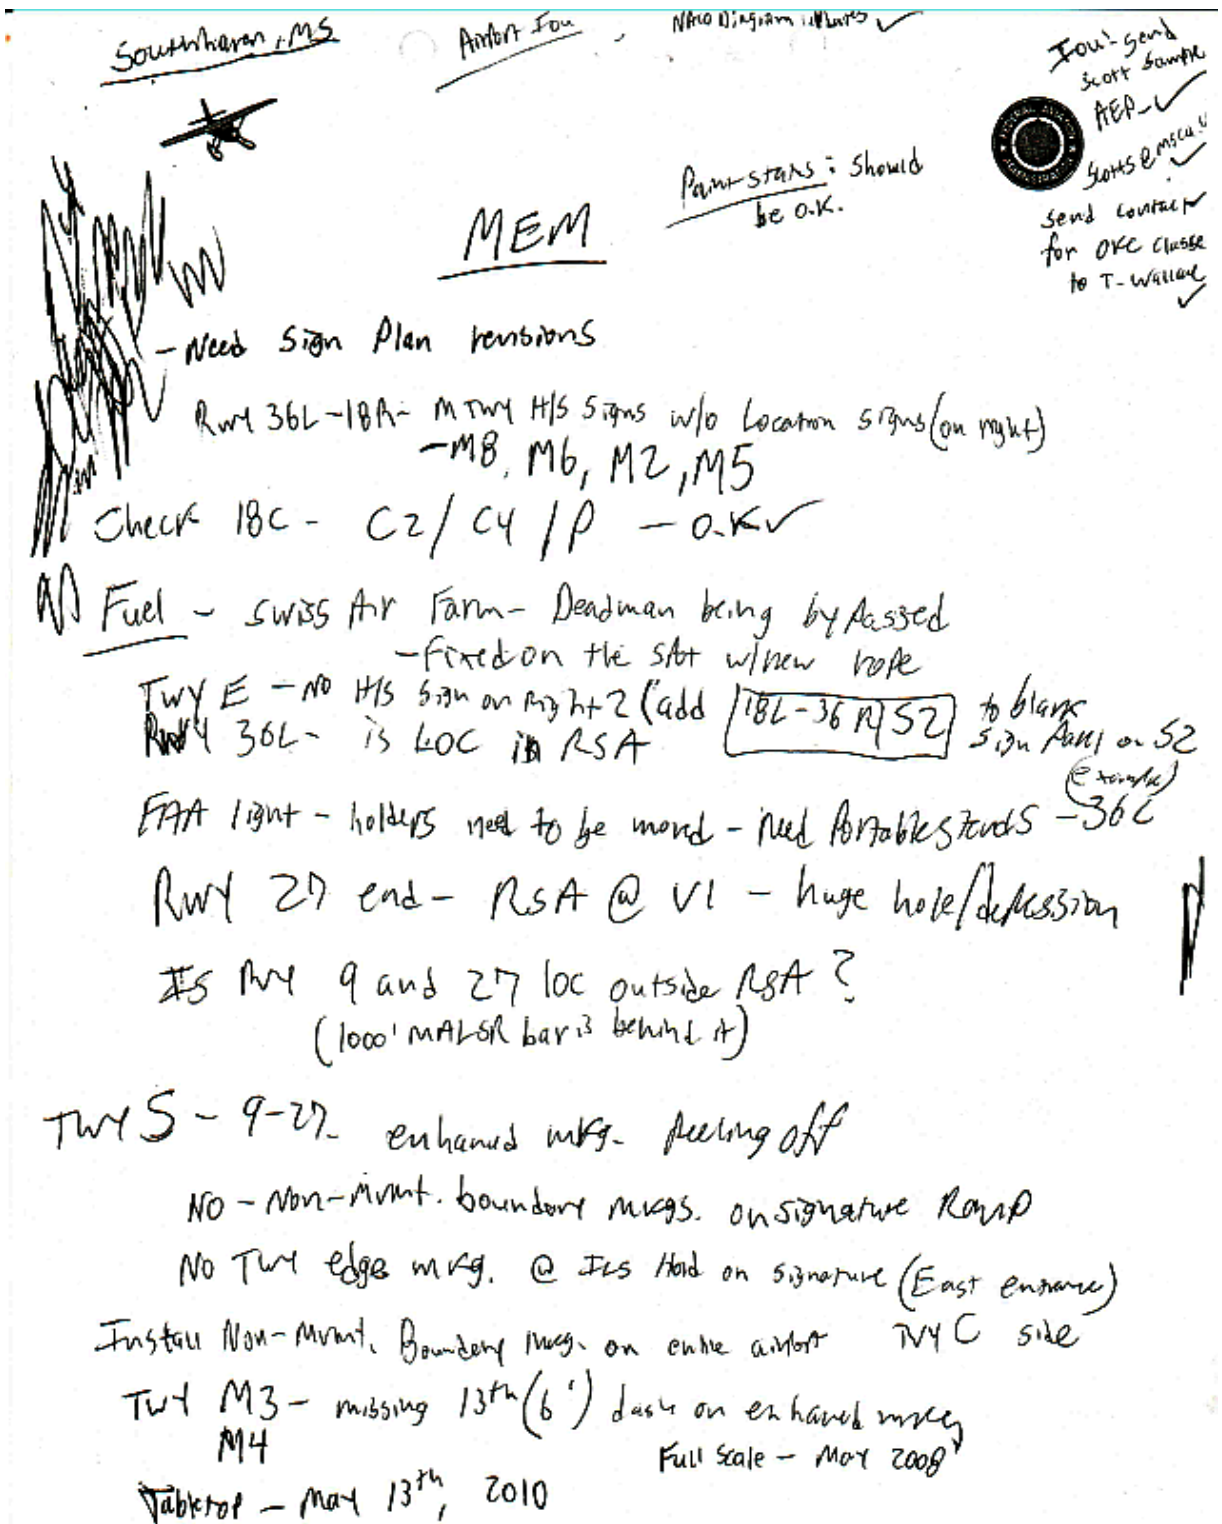 Southhaven, MS
Airport IOU
NACO Diagram updates ✓
IOU: Send
Scott Sample
AEP-✓
Scotts@msca
✓
send contact
for OKC classe
to T-Wallace
✓
FEDERAL AVIATION
ADMINISTRATION
Paint stans: Should
be O.K.
MEM
- Need Sign Plan revisions
Rwy 36L-18R- M Twy H/S Signs w/o Location signs (on right)
-M8, M6, M2, M5
Check 18C - C2/C4/P - O.K✓
Fuel - Swiss Air Farm - Deadman being bypassed
- Fixed on the spot w/new rope
Twy E - NO H/S Sign on Right 2 (add 18L-36R S2 to blank
Sign Panl on S2
Rwy 36L- is LOC in RSA
(example)
FAA light - holders need to be moved - need Portable Stands - 36L
Rwy 27 end - RSA @ V1 - huge hole/depression
Is Rwy 9 and 27 loc outside RSA?
(1000' MALSR bar is behind it)
Twy S - 9-27- enhanced mkg. peeling off
NO - Non-Mvmt. boundary mkgs. on signature Ramp
No Twy edge mkg. @ ILS Hold on signature (East entrance)
Twy C side
Install Non-Mvmt. Boundary mkg. on entire airport
Twy M3 - missing 13th (6') dash on enhanced mkg
M4
Full scale - May 2008
Tabletop - May 13th, 2010